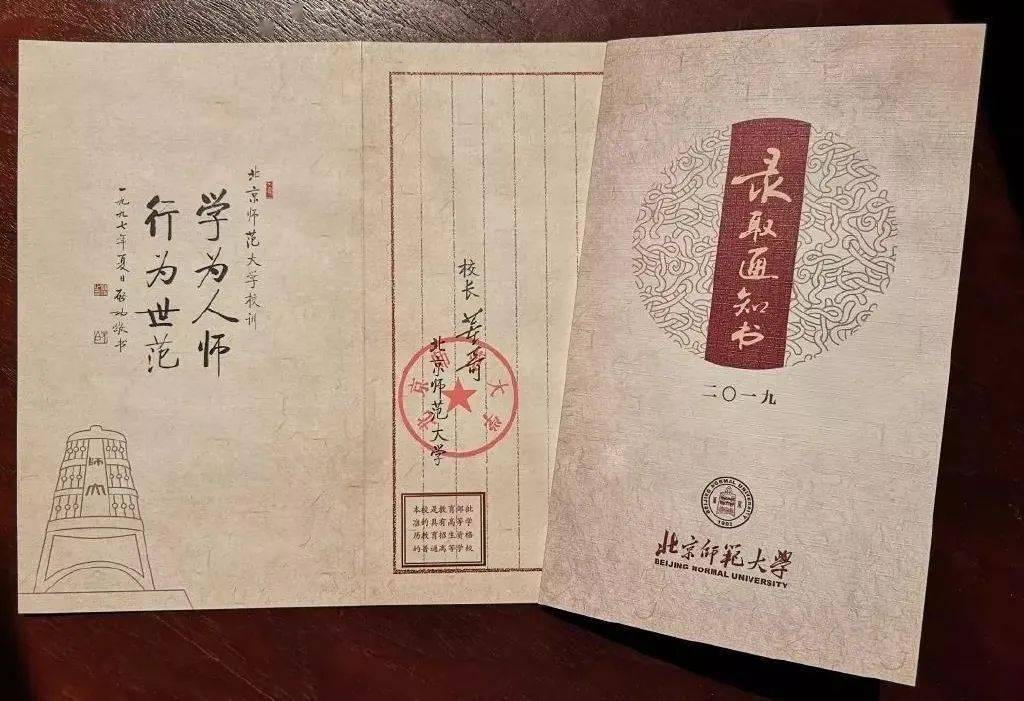 北京师范大学校训
学为人师
行为世范
一九九七年夏日启功敬书
師大
校长 董奇
北京师范大学
北京师范大学
本校是教育部批
准的具有高等学
历教育招生资格
的普通高等学校
录取通知书
二〇一九
BEIJING NORMAL UNIVERSITY
1902
北京师範大學
BEIJING NORMAL UNIVERSITY